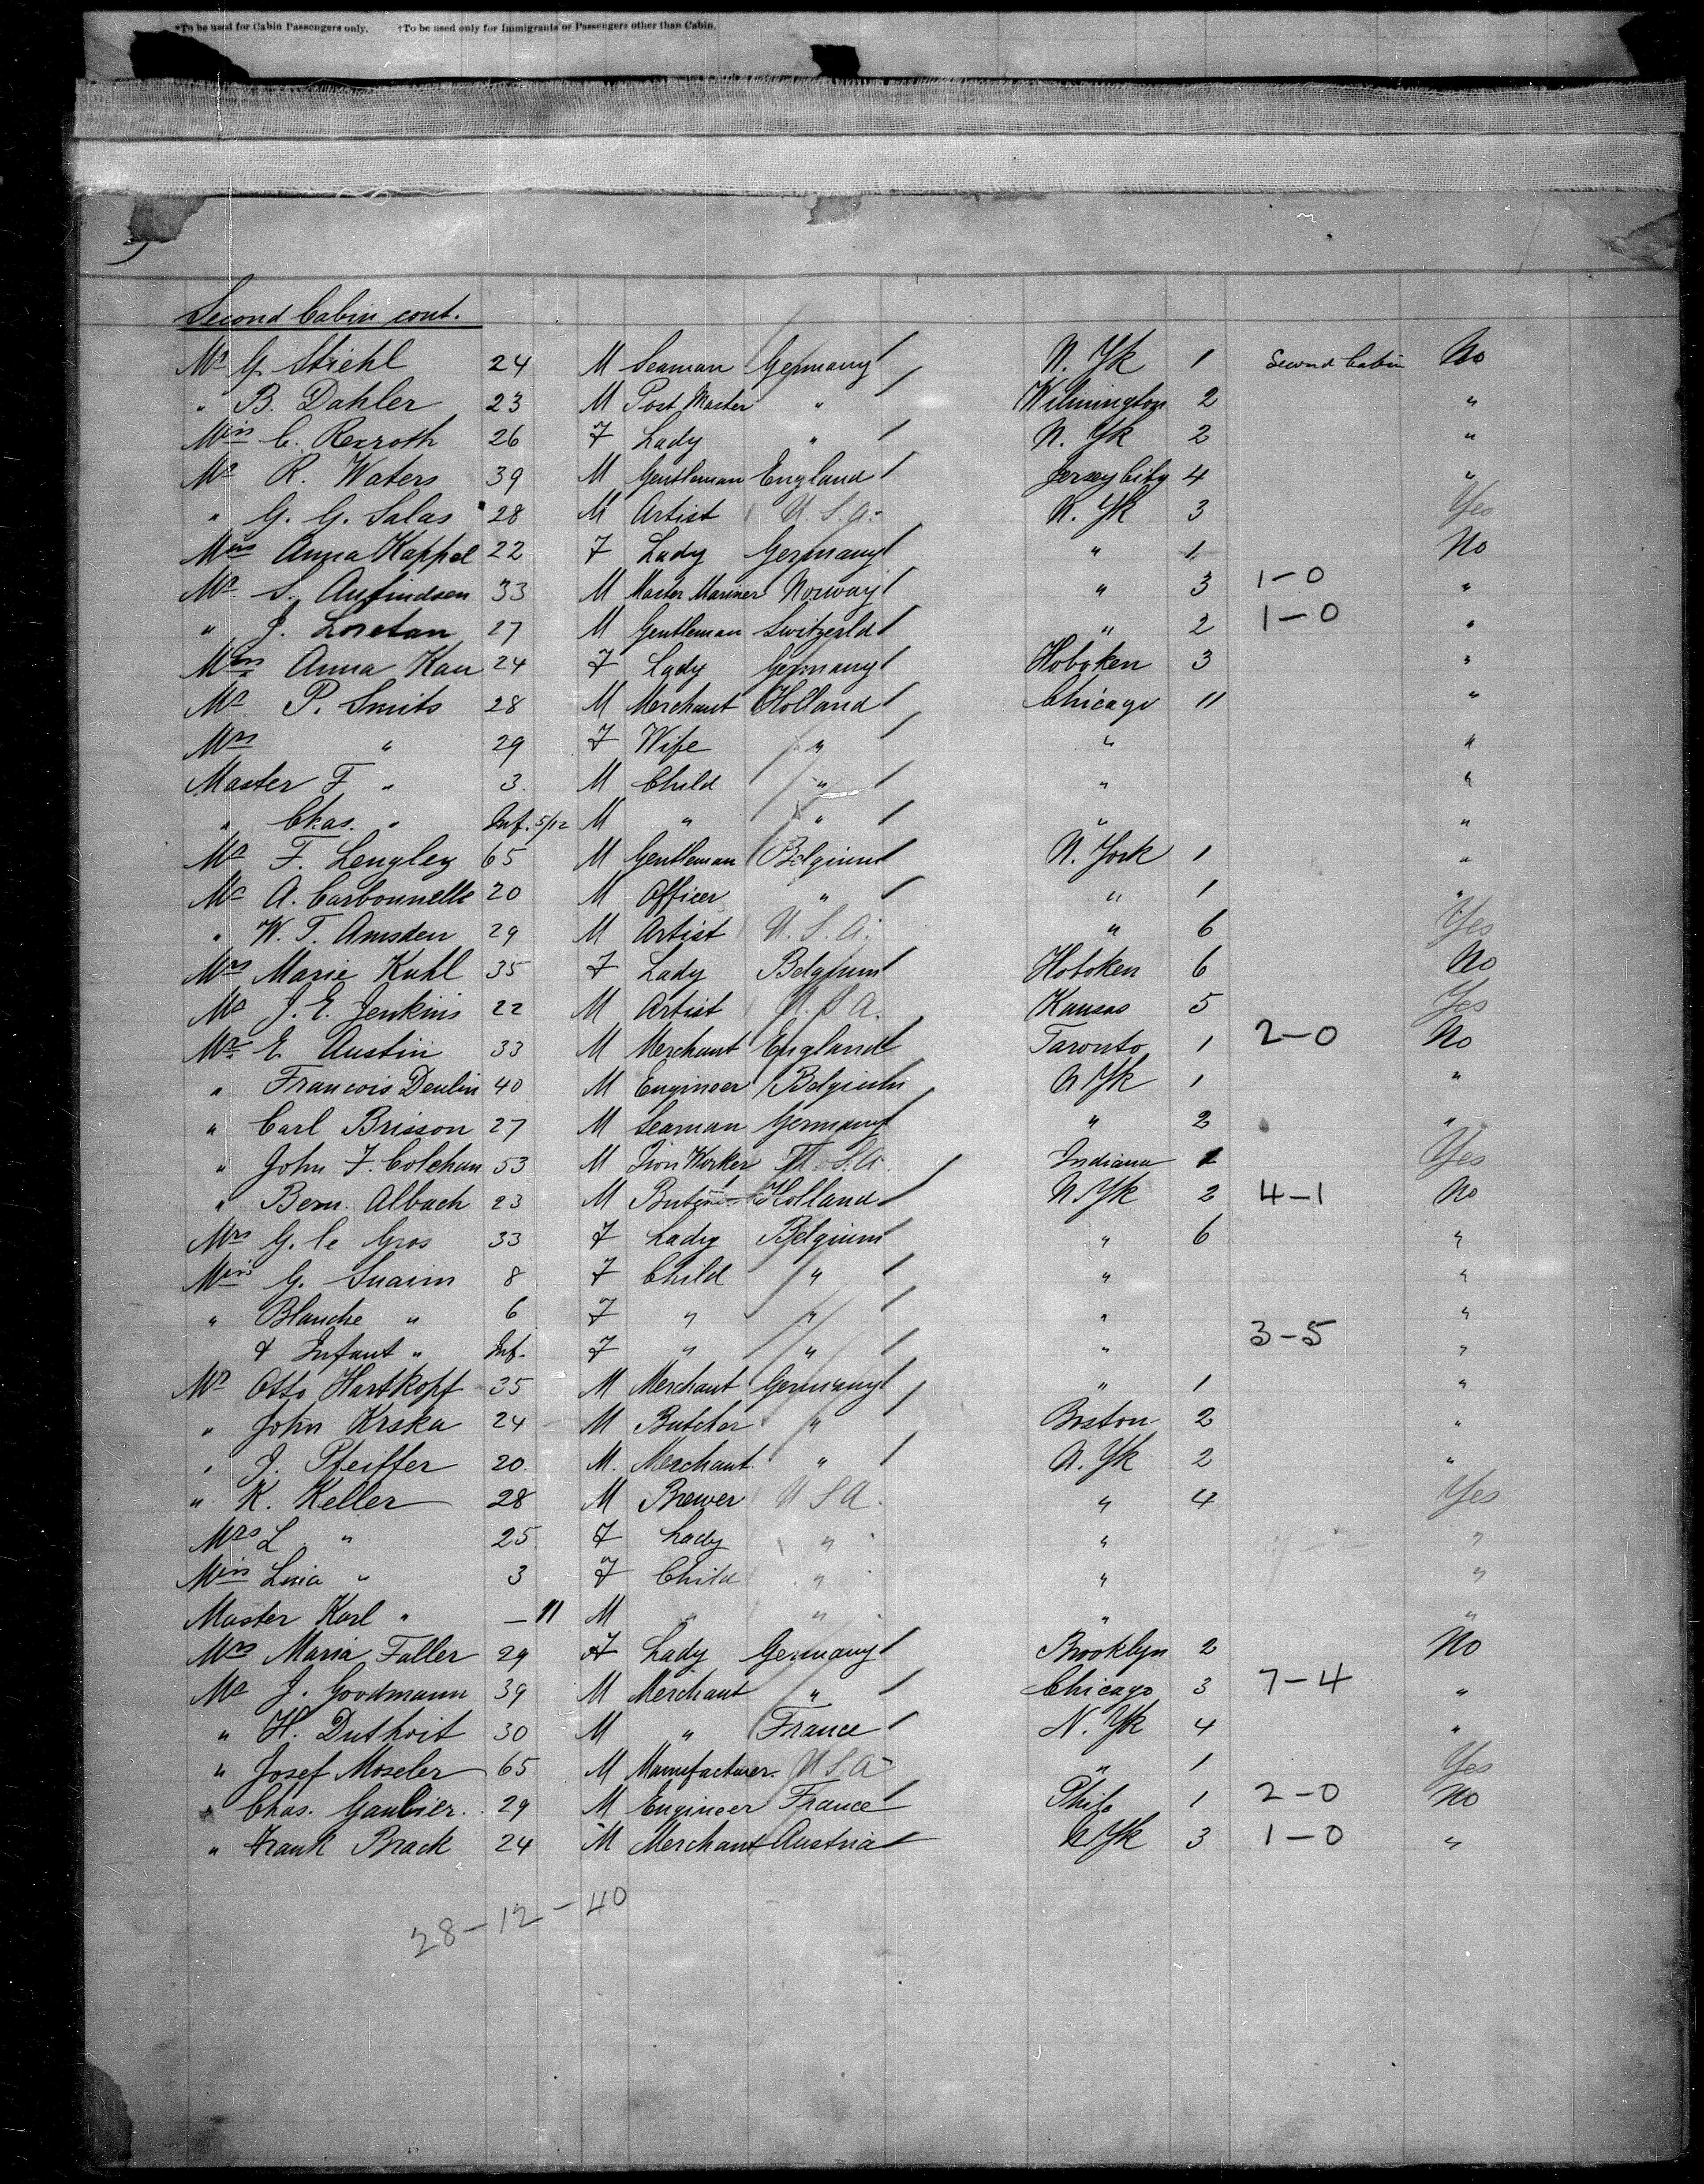 *To be used for Cabin Passengers only. †To be used only for Immigrants or Passengers other than Cabin.
Second Cabin cont.
Mr G. Stiehl 24 M Seaman Germany N. Yk 1 Second Cabin No
" B. Dahler 23 M Post Master " Wilmington 2 "
Miss C. Rexroth 26 F Lady " N. Yk 2 "
Mr R. Waters 39 M Gentleman England Jersey City 4 "
" G. G. Salas 28 M Artist U.S.A. N. Yk 3 Yes
Miss Anna Kappel 22 F Lady Germany " 1 No
Mr S. Aufindsen 33 M Master Mariner Norway " 3 1-0 "
" J. Loretan 27 M Gentleman Switzerld " 2 1-0 "
Anna Kau 24 F Lady Germany Hoboken 3 "
Mr P. Smits 28 M Merchant Holland Chicago 11 "
Mrs " 29 F Wife " " "
Master F " 3. M Child " " "
" Chas. " Inf. 5/12 M " " " "
Mr F. Lengley 65 M Gentleman Belgium N. York 1 "
Mr A. Carbonnelle 20 M Officer " " 1 "
" W. T. Amsden 29 M Artist U.S.A. " 6 Yes
Mrs Marie Kuhl 35 F Lady Belgium Hoboken 6 No
Mr J. E. Jenkins 22 M Artist U.S.A. Kansas 5 Yes
Mr E Austin 33 M Merchant England Toronto 1 2-0 No
" Francois Deulin 40 M Engineer Belgium N Yk 1 "
" Carl Brisson 27 M Seaman Germany " 2 "
" John F. Colehan 53 M Iron Worker U.S.A. Indiana 1 Yes
" Bern. Albach 23 M Holland N Yk 2 4-1 No
Mrs G. le Gros 33 F Lady Belgium " 6 "
Miss G. Suaim 8 F Child " " "
" Blanche " 6 F " " " "
& Infant " Inf. F " " " 3-5 "
Mr Otto Hartkopf 35 M Merchant Germany " 1 "
" John Krska 24 M Butcher " Boston 2 "
" J. Pfeiffer 20 M. Merchant " N. Yk 2 "
" K. Keller 28 M Brewer U S A. " 4 Yes
Mrs L " 25 F Lady " " "
Miss Lina " 3 F Child " " "
Master Karl " - 11 M " " " "
Mrs Maria Faller 29 F Lady Germany Brooklyn 2 No
Mr J. Goodmann 39 M Merchant " Chicago 3 7-4 "
" H. Duthoit 30 M " France N. Yk 4 "
" Josef Moseler 65 M Manufacturer U S A " 1 Yes
" Chas. Gaubier. 29 M Engineer France Phila 1 2-0 No
" Frank Brack 24 M Merchant Austria N Yk 3 1-0 "
28-12-40